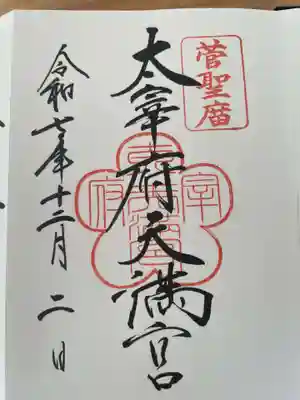 菅聖廟
太宰府天満宮
令和七年十二月二日